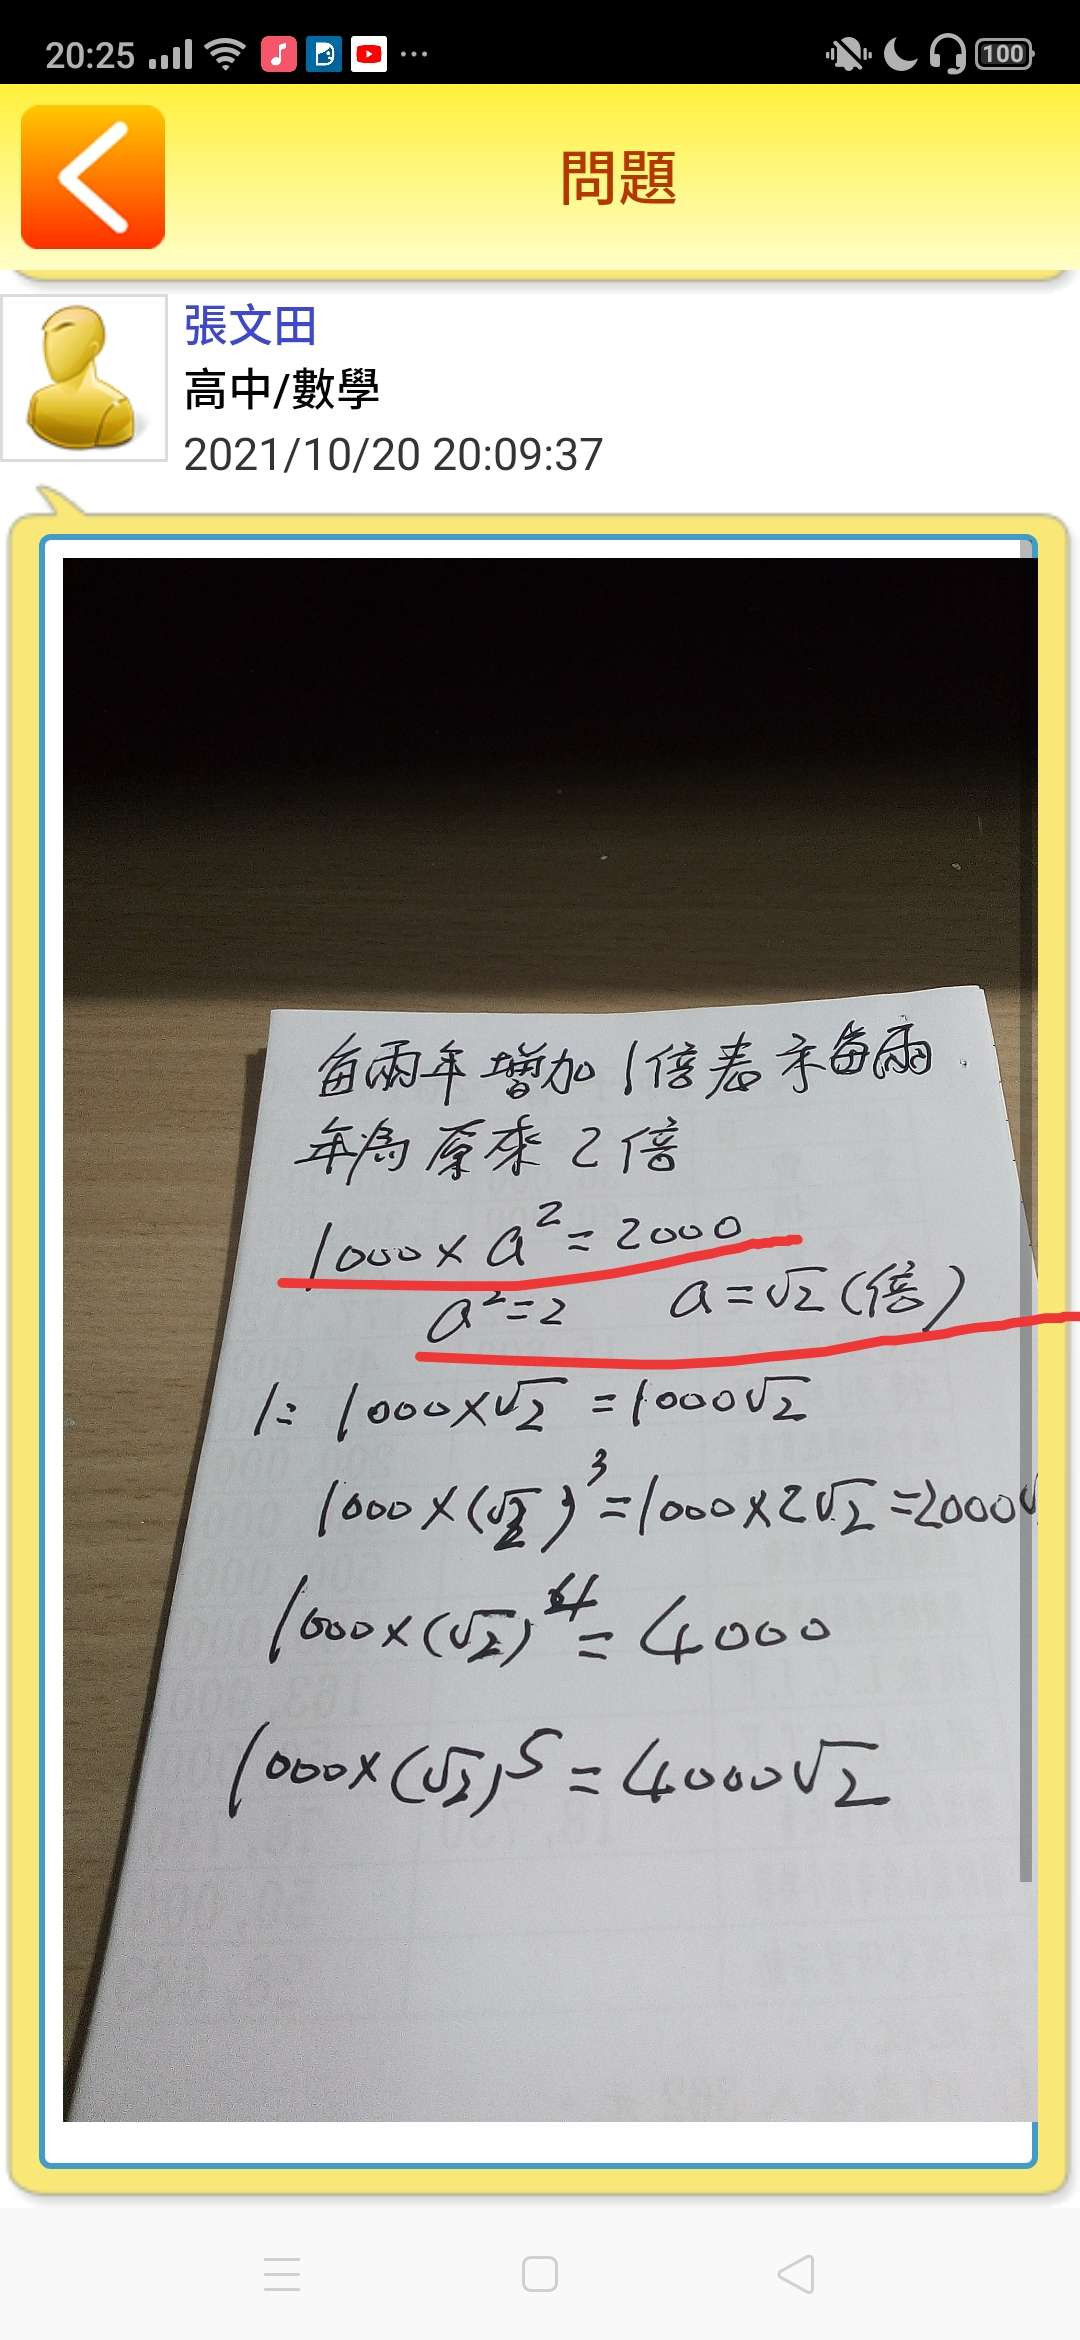 20:25
100
問題
張文田
高中/數學
2021/10/20 20:09:37
每兩年增加1倍表示每兩
年為原來2倍
1000×a²=2000
a²=2 a=√2(倍)
1= 1000×√2=1000√2
1000×(√2)³=1000×2√2=2000√
1000×(√2)⁴=4000
1000×(√2)⁵=4000√2